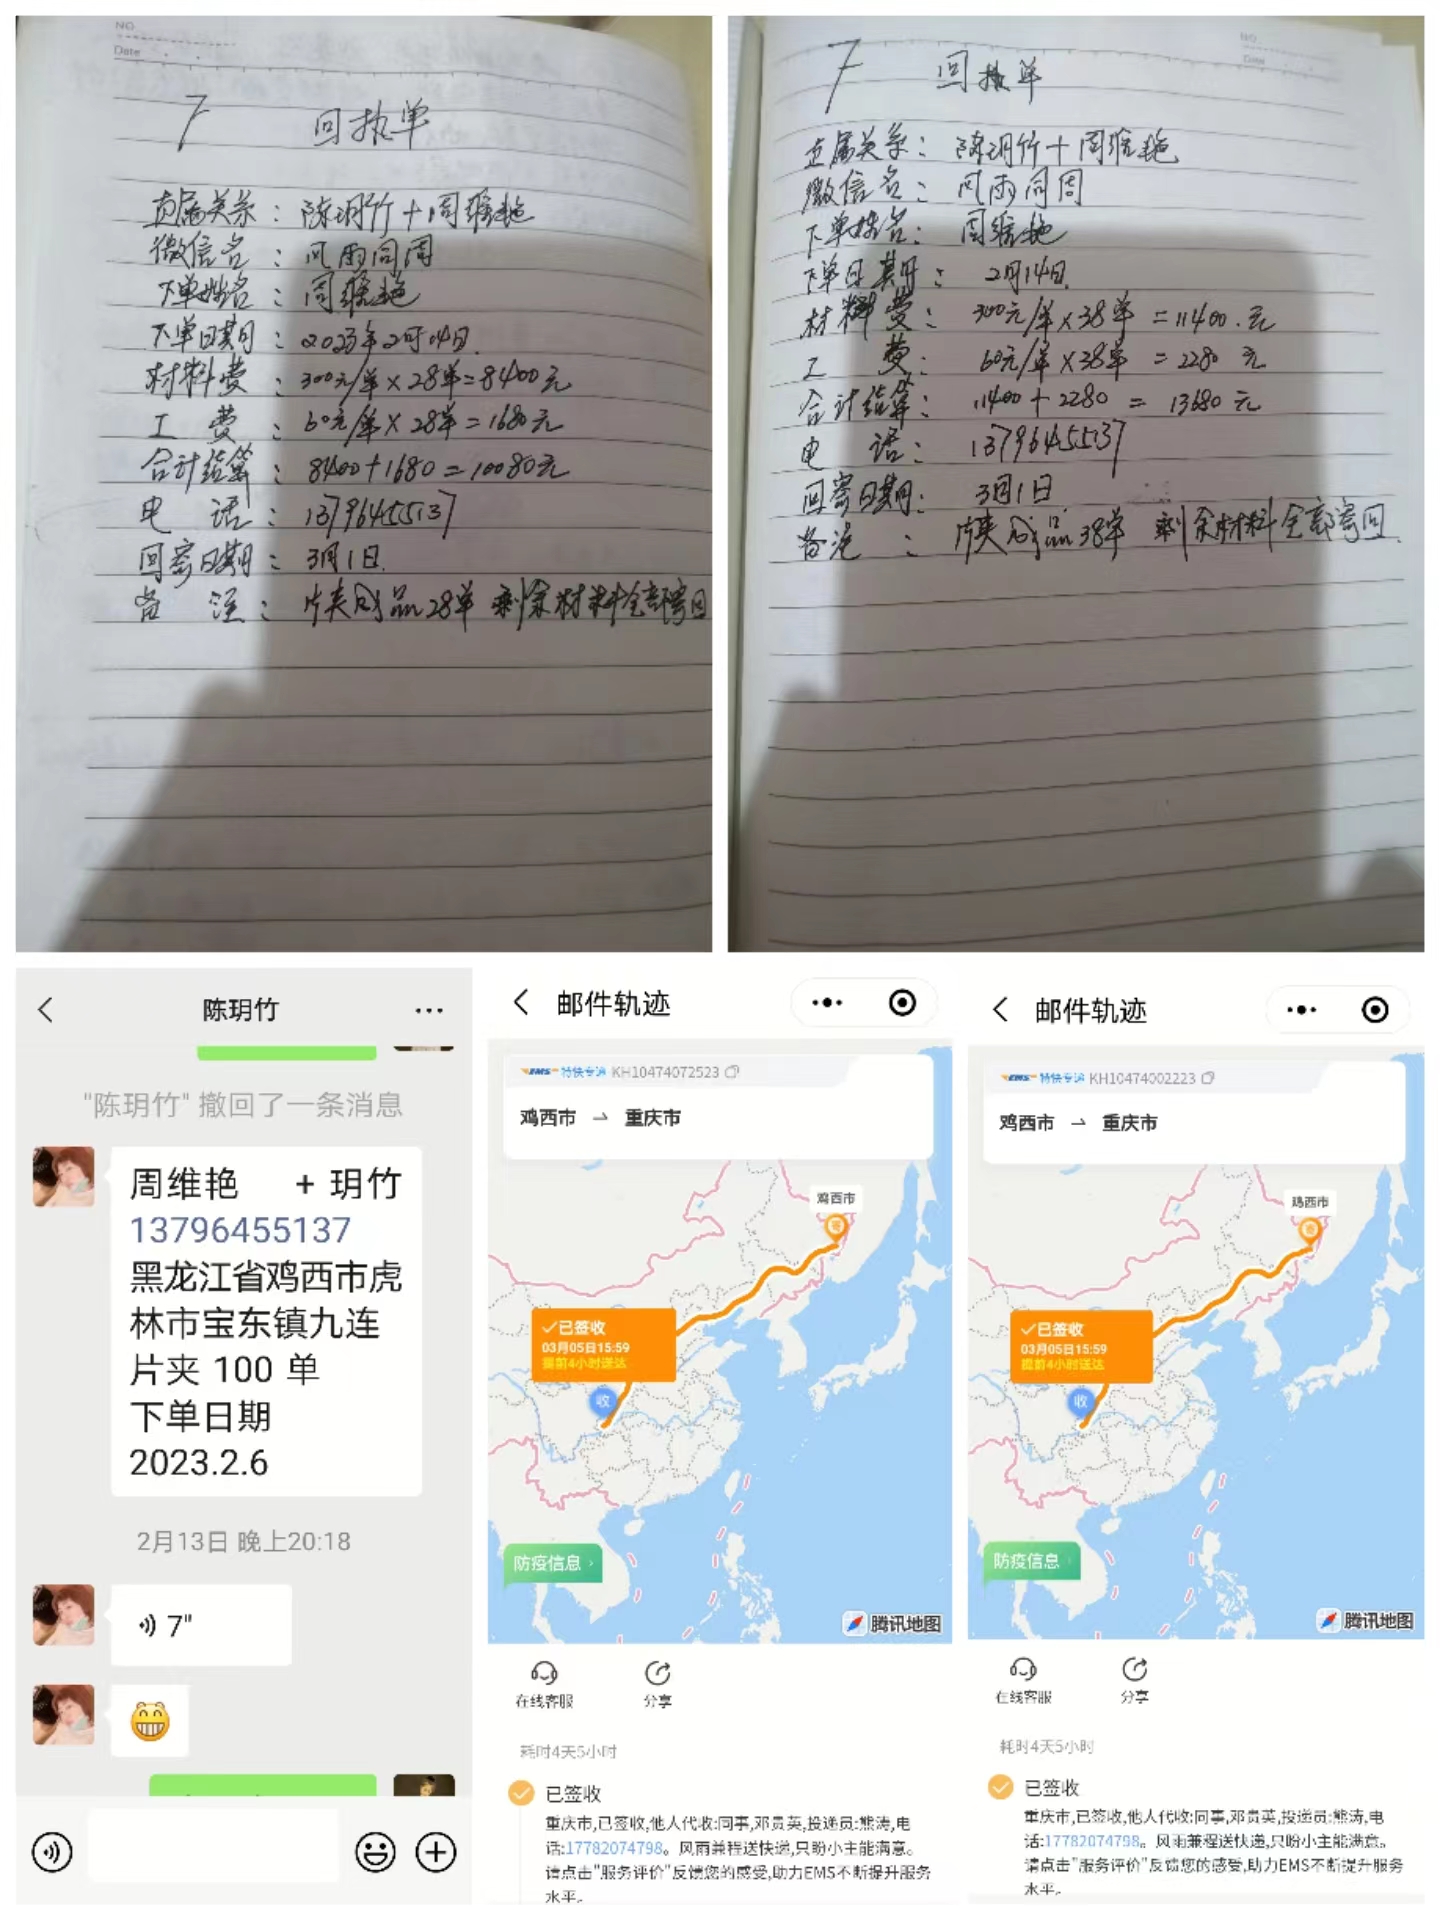 NO.
Date
7 回执单
直属关系：陈玥竹+周维艳
微信名：风雨同周
下单姓名：周维艳
下单日期：2023年2月14日.
材料费：300元/单×28单=8400元
工费：60元/单×28单=1680元
合计结算：8400+1680=10080元
电话：13796455137
回寄日期：3月1日.
备注：片夹成品28单 剩余材料全部寄回
NO.
Date
7 回执单
直属关系：陈玥竹+周维艳
微信名：风雨同周
下单姓名：周维艳
下单日期：2月14日.
材料费：300元/单×38单=11400.元
工费：60元/单×38单=2280元
合计结算：11400+2280=13680元
电话：13796455137
回寄日期：3月1日
备注：片夹成品38单 剩余材料全部寄回.
陈玥竹
"陈玥竹" 撤回了一条消息
周维艳 + 玥竹
13796455137
黑龙江省鸡西市虎
林市宝东镇九连
片夹 100 单
下单日期
2023.2.6
2月13日 晚上20:18
7"
邮件轨迹
EMS 特快专递 KH10474072523
鸡西市 → 重庆市
鸡西市
寄
已签收
03月05日15:59
提前4小时送达
收
防疫信息
腾讯地图
在线客服
分享
耗时4天5小时
已签收
重庆市,已签收,他人代收:同事,邓贵英,投递员:熊涛,电
话:17782074798。风雨兼程送快递,只盼小主能满意。
请点击"服务评价"反馈您的感受,助力EMS不断提升服务
水平。
邮件轨迹
EMS 特快专递 KH10474002223
鸡西市 → 重庆市
鸡西市
寄
已签收
03月05日15:59
提前4小时送达
收
防疫信息
腾讯地图
在线客服
分享
耗时4天5小时
已签收
重庆市,已签收,他人代收:同事,邓贵英,投递员:熊涛,电
话:17782074798。风雨兼程送快递,只盼小主能满意。
请点击"服务评价"反馈您的感受,助力EMS不断提升服务
水平。